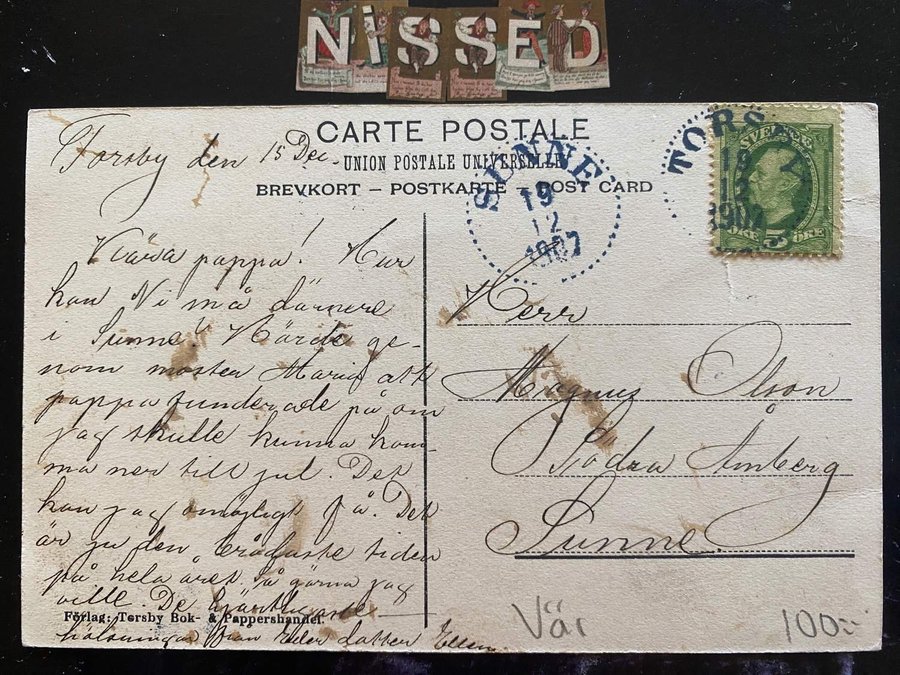 NiSSED
CARTE POSTALE
UNION POSTALE UNIVERSELLE
BREVKORT – POSTKARTE – POST CARD
SUNNE
19
12
1907
TORS
12
1907
SVERIGE
ÖRE 5 ÖRE
Torsby den 15 Dec.
Kära pappa! Hur
kan Ni må därnere
i Sunne? Hörde ge-
nom moster Maria att
pappa funderade på om
jag skulle kunna kom-
ma ner till jul. Det
kan jag omöjligt få. Det
är ju den brådaste tiden
på hela året så gärna jag
ville. De hjärtligaste
hälsningar från Eder dotter Ellen.
Herr
Magnus Olson
Södra Åmberg
Sunne.
Förlag: Torsby Bok- & Pappershandel.
Vär
100:-